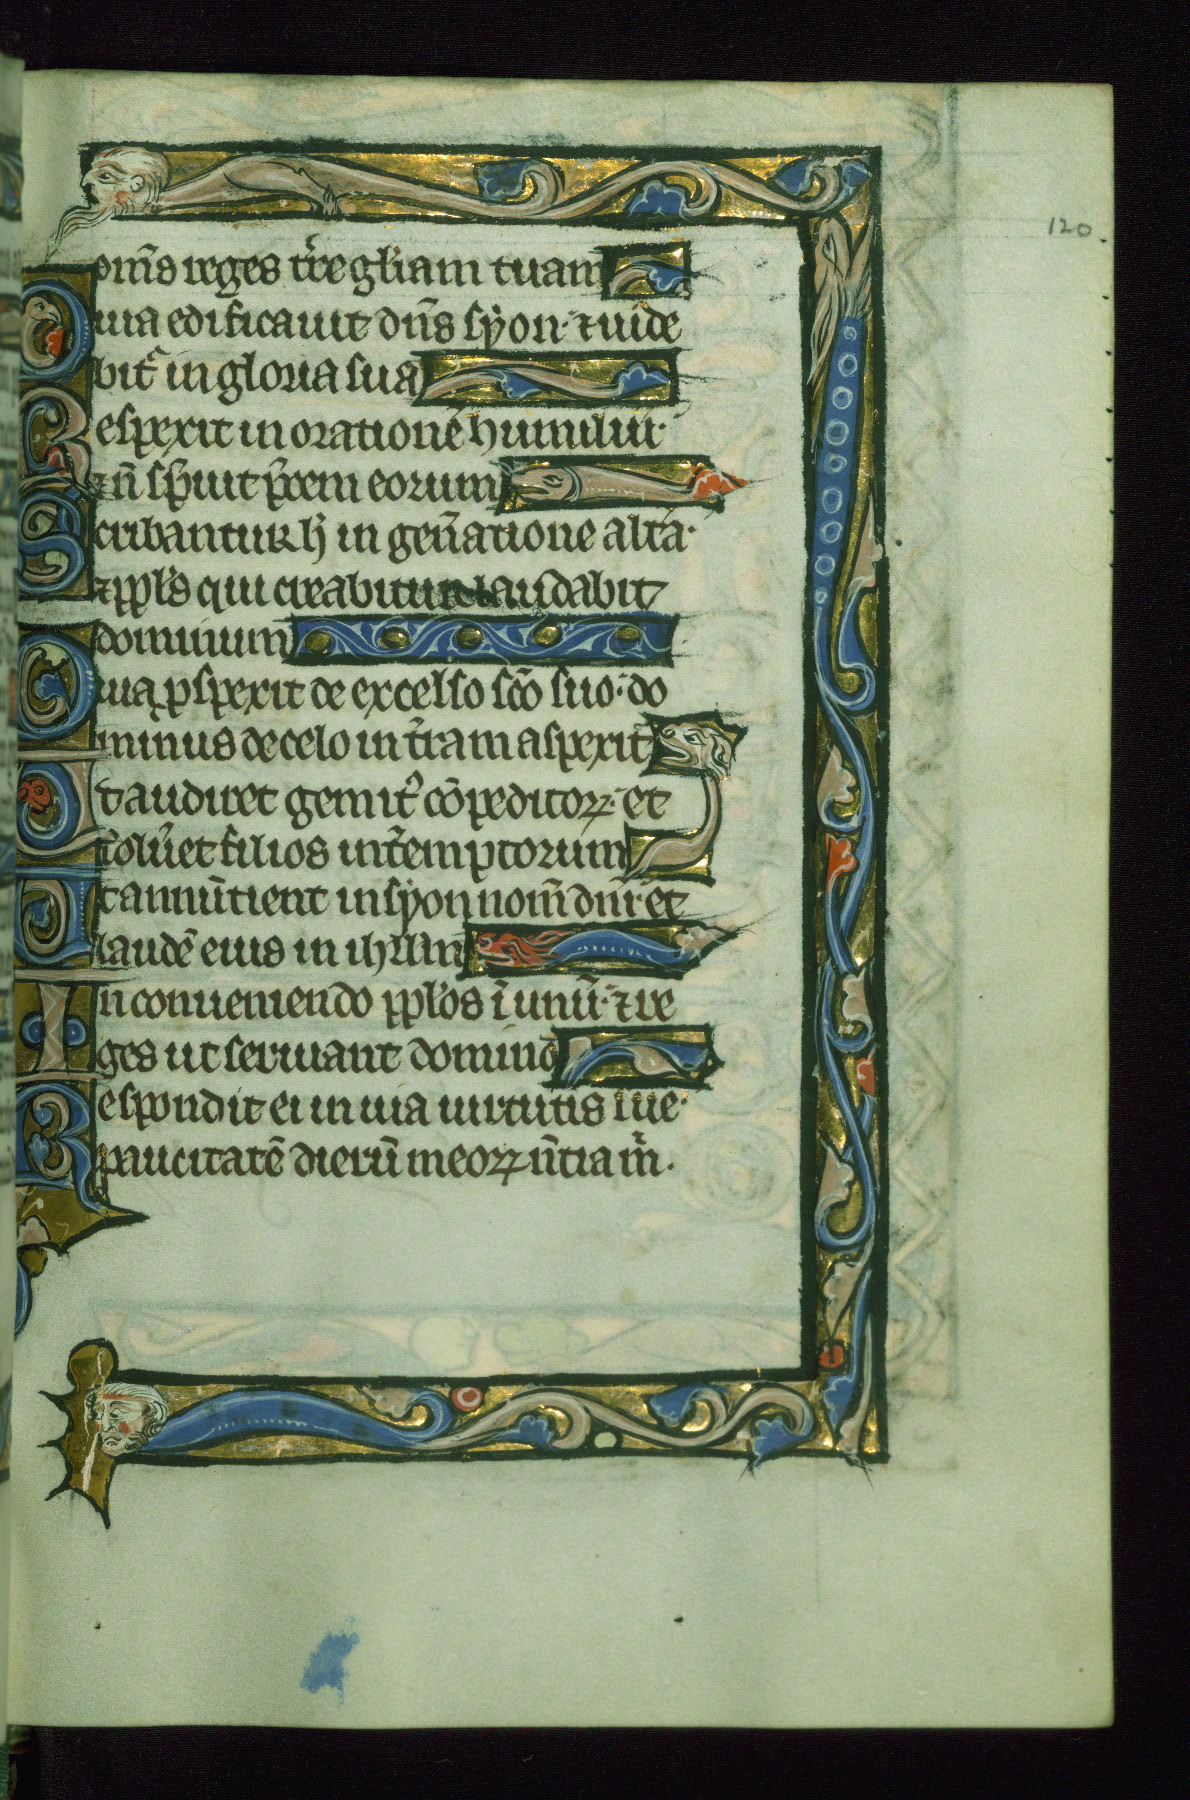 120
om̄s reges tr̄e gl̄iam tuam
Quia edificauit dn̄s syon· ⁊ uide
bit᷑ in gloria sua
Respexit in orationē humiliū·
⁊ n̄ sp̄uit p̄cem eorum
Scribantur h̄ in gen̄atione alt̄a·
⁊ ppl̄s qui creabitur laudabit
dominum
Quia ꝓspexit de excelso sc̄o suo· do
minus de celo in tr̄am aspexit
Ut audiret gemitꝰ cōpeditoꝝ· et
solu̅et filios int̄emptorum
Ut annūtient in syon nom̄ dn̄i· et
laudē eius in ihrl̄m
In conueniendo ppl̄os ī unū· ⁊ re
ges ut seruiant domino
Respondit ei in uia uirtutis sue·
paucitatē dierū meoꝝ n̄tia m̄·